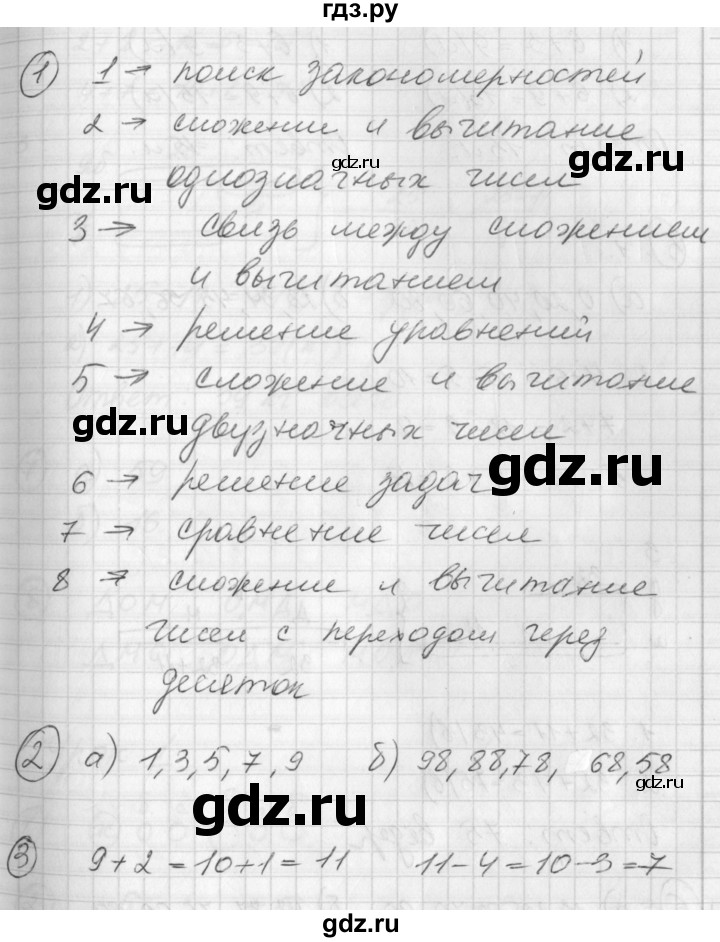 гдз.ру
① 1 → поиск закономерностей
2 → сложение и вычитание
gdz.ru
однозначных чисел
gdz.ru
3 → связь между сложением
и вычитанием
4 → решение уравнений
gdz.ru
5 → сложение и вычитание
gdz.ru
двузначных чисел
gdz.ru
6 → решение задач
7 → сравнение чисел
8 → сложение и вычитание
чисел с переходом через
gdz.ru
gdz.ru
десяток
② а) 1, 3, 5, 7, 9 б) 98, 88, 78, 68, 58
gdz.ru
gdz.ru
③ 9+2=10+1=11 11-4=10-3=7
gdz.ru